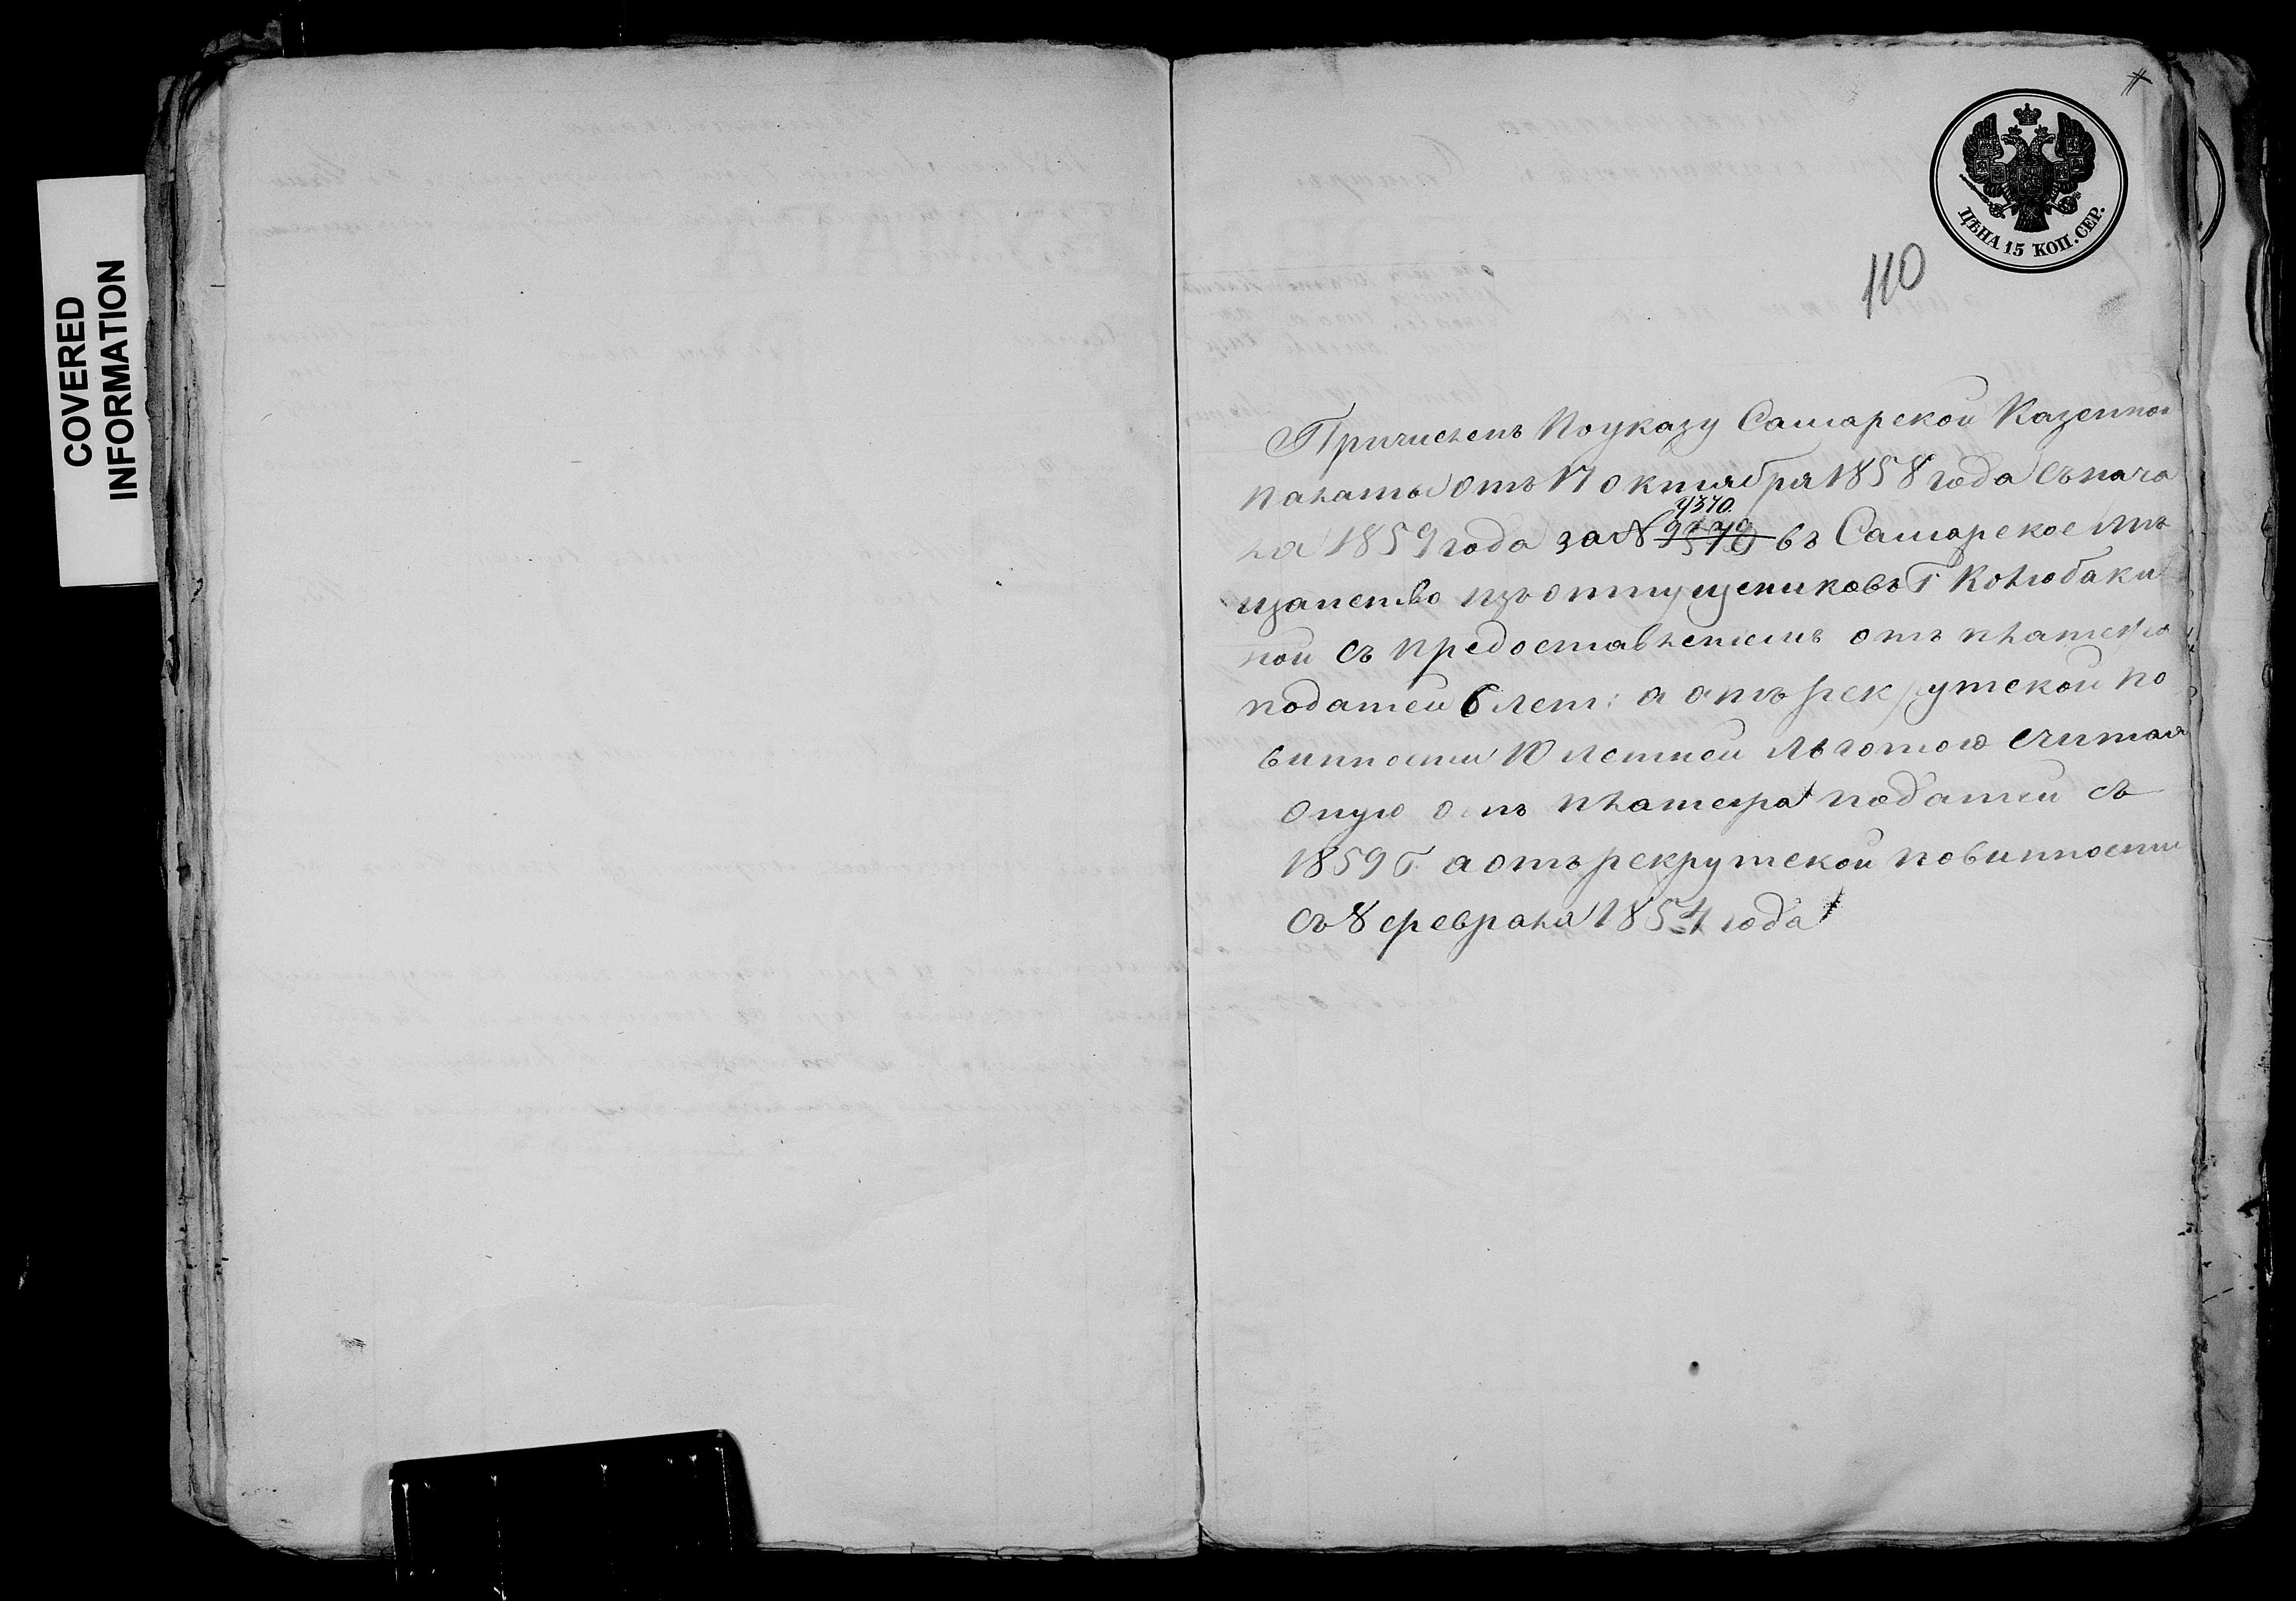 COVERED
INFORMATION
ЦѢНА 15 КОП. СЕР.
110
Причисленъ Поуказу Самарской Казенной
палаты отъ 17 октября 1858 года Съ нача
ла 1859 года за № 9370 въ Самарское мѣ
9370.
щанство изъ отпущениковъ Г Колюбаки
ной съ предоставлениемъ отъ платежа
податей 6 лет: а отъ рекрутской по
винности 10 летней льготою считая
оную отъ платежа податей съ
1859 Г. а отъ рекрутской повинности
съ 8 февраля 1854 года